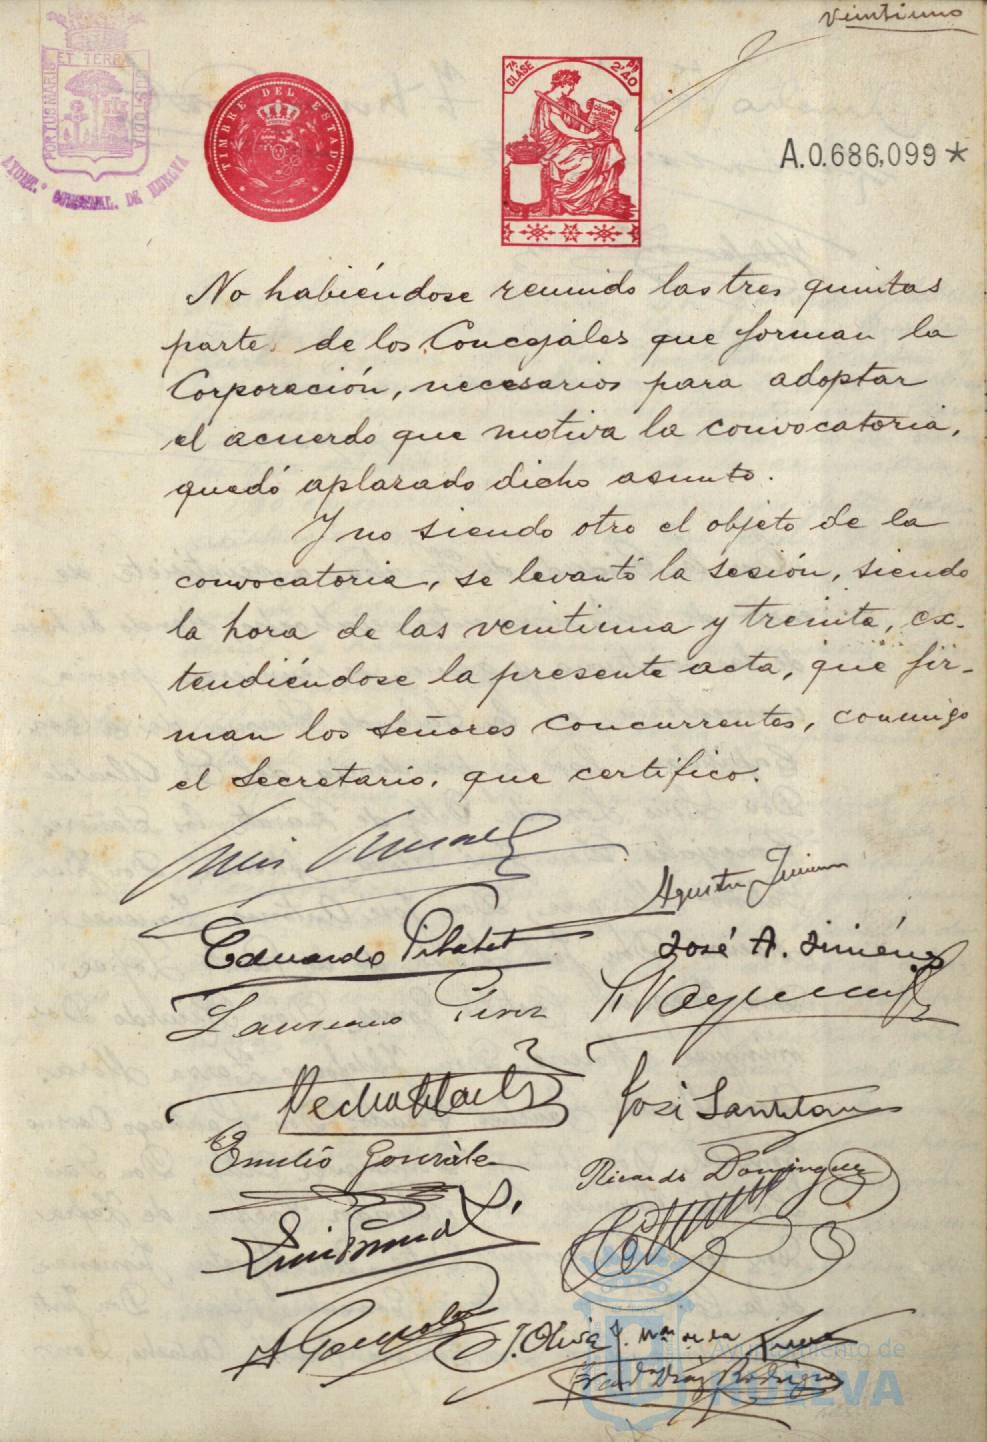 veintiuno
PORTUS MARIS ET TERRAE CUSTODIA
TIMBRE DEL ESTADO
7ª CLASE
2'40
A.0.686,099*
No habiéndose reunido las tres quintas
parte de los Concejales que forman la
Corporación, necesarios para adoptar
el acuerdo que motiva la convocatoria,
quedó aplazado dicho asunto.
Y no siendo otro el objeto de la
convocatoria, se levantó la sesión, siendo
la hora de las veintiuna y treinta, ex-
tendiéndose la presente acta, que fir-
man los Señores concurrentes, conmigo
el Secretario, que certifico.
Luis
Agustin Jimenez
Eduardo
José A. Jiménez
Laureano Perez
José Santillan
Emilio González
Ricardo Dominguez
Luis
A Gonzalez
J. Oliva J. Mª de la
Díaz Rodríguez
Ayuntamiento de
HUELVA